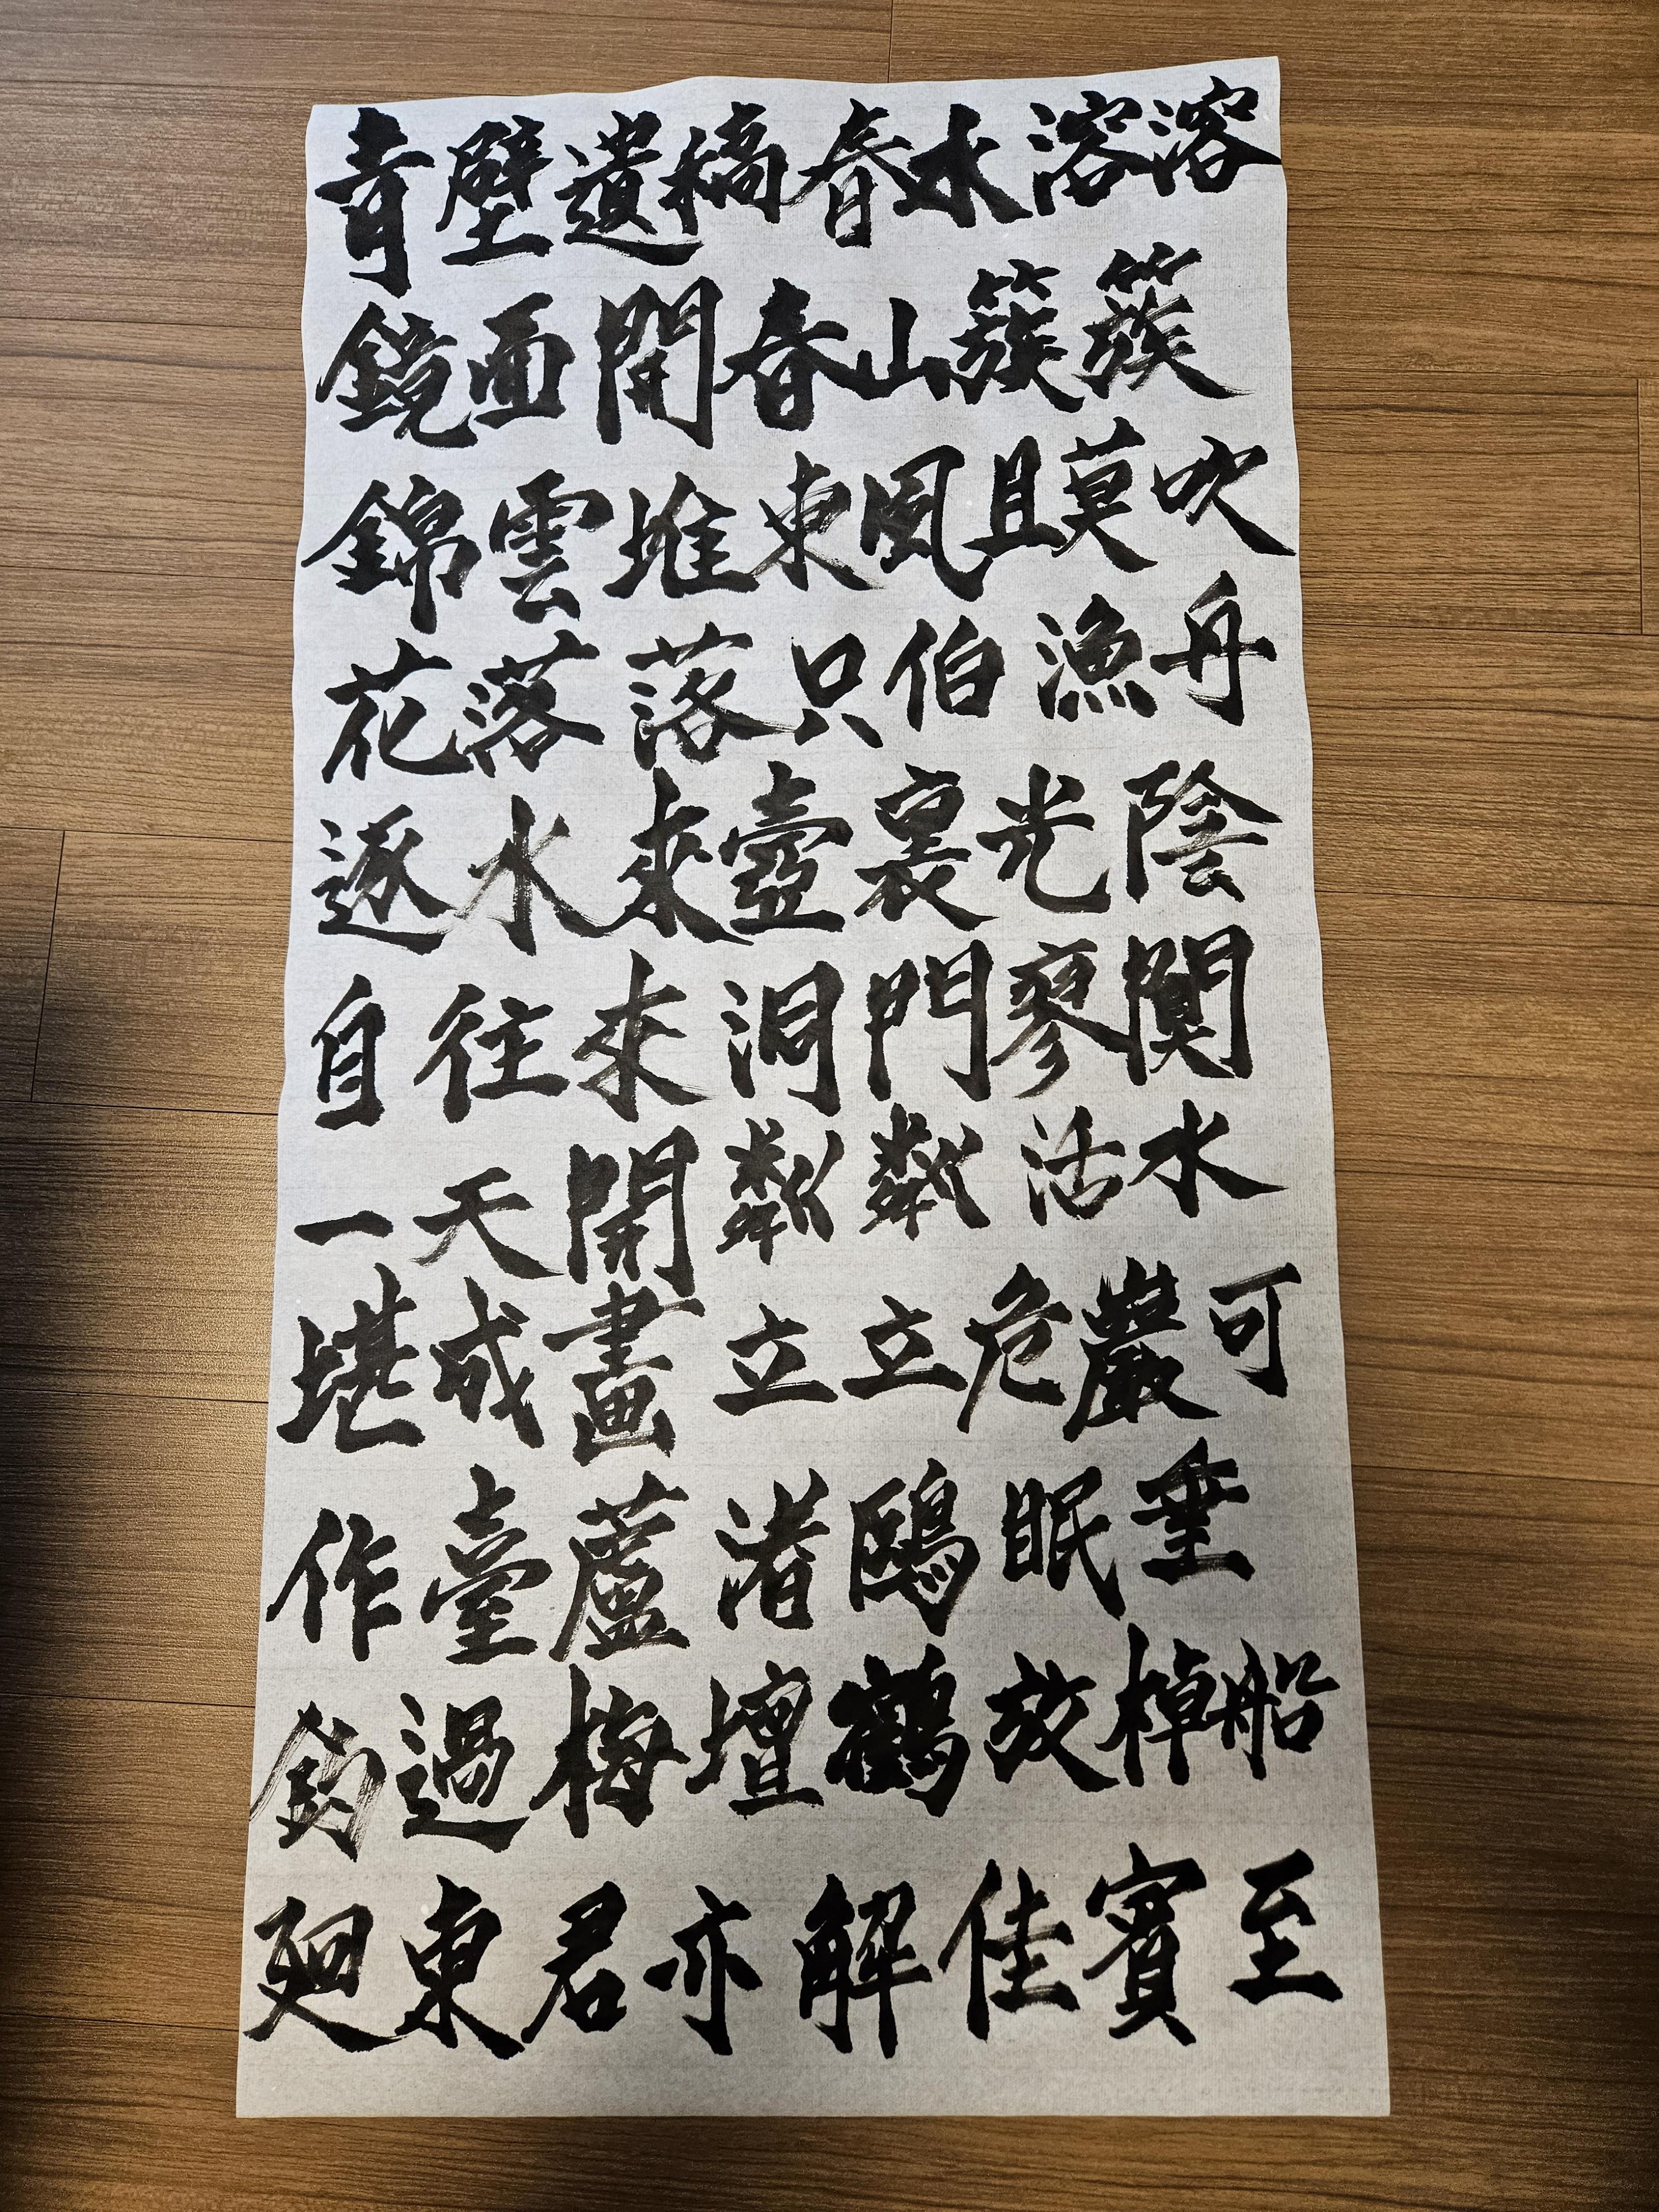 青壁遺稿春水溶溶
鏡面開春山簇簇
錦雲堆東風且莫吹
花落落只伯漁舟
逐水來壺裏光陰
自往來洞門寥闃
一天開粼粼活水
堪成畫立立危巖可
作臺蘆渚鷗眠垂
釣過梅壇鶴放棹船
廻東君亦解佳賓至